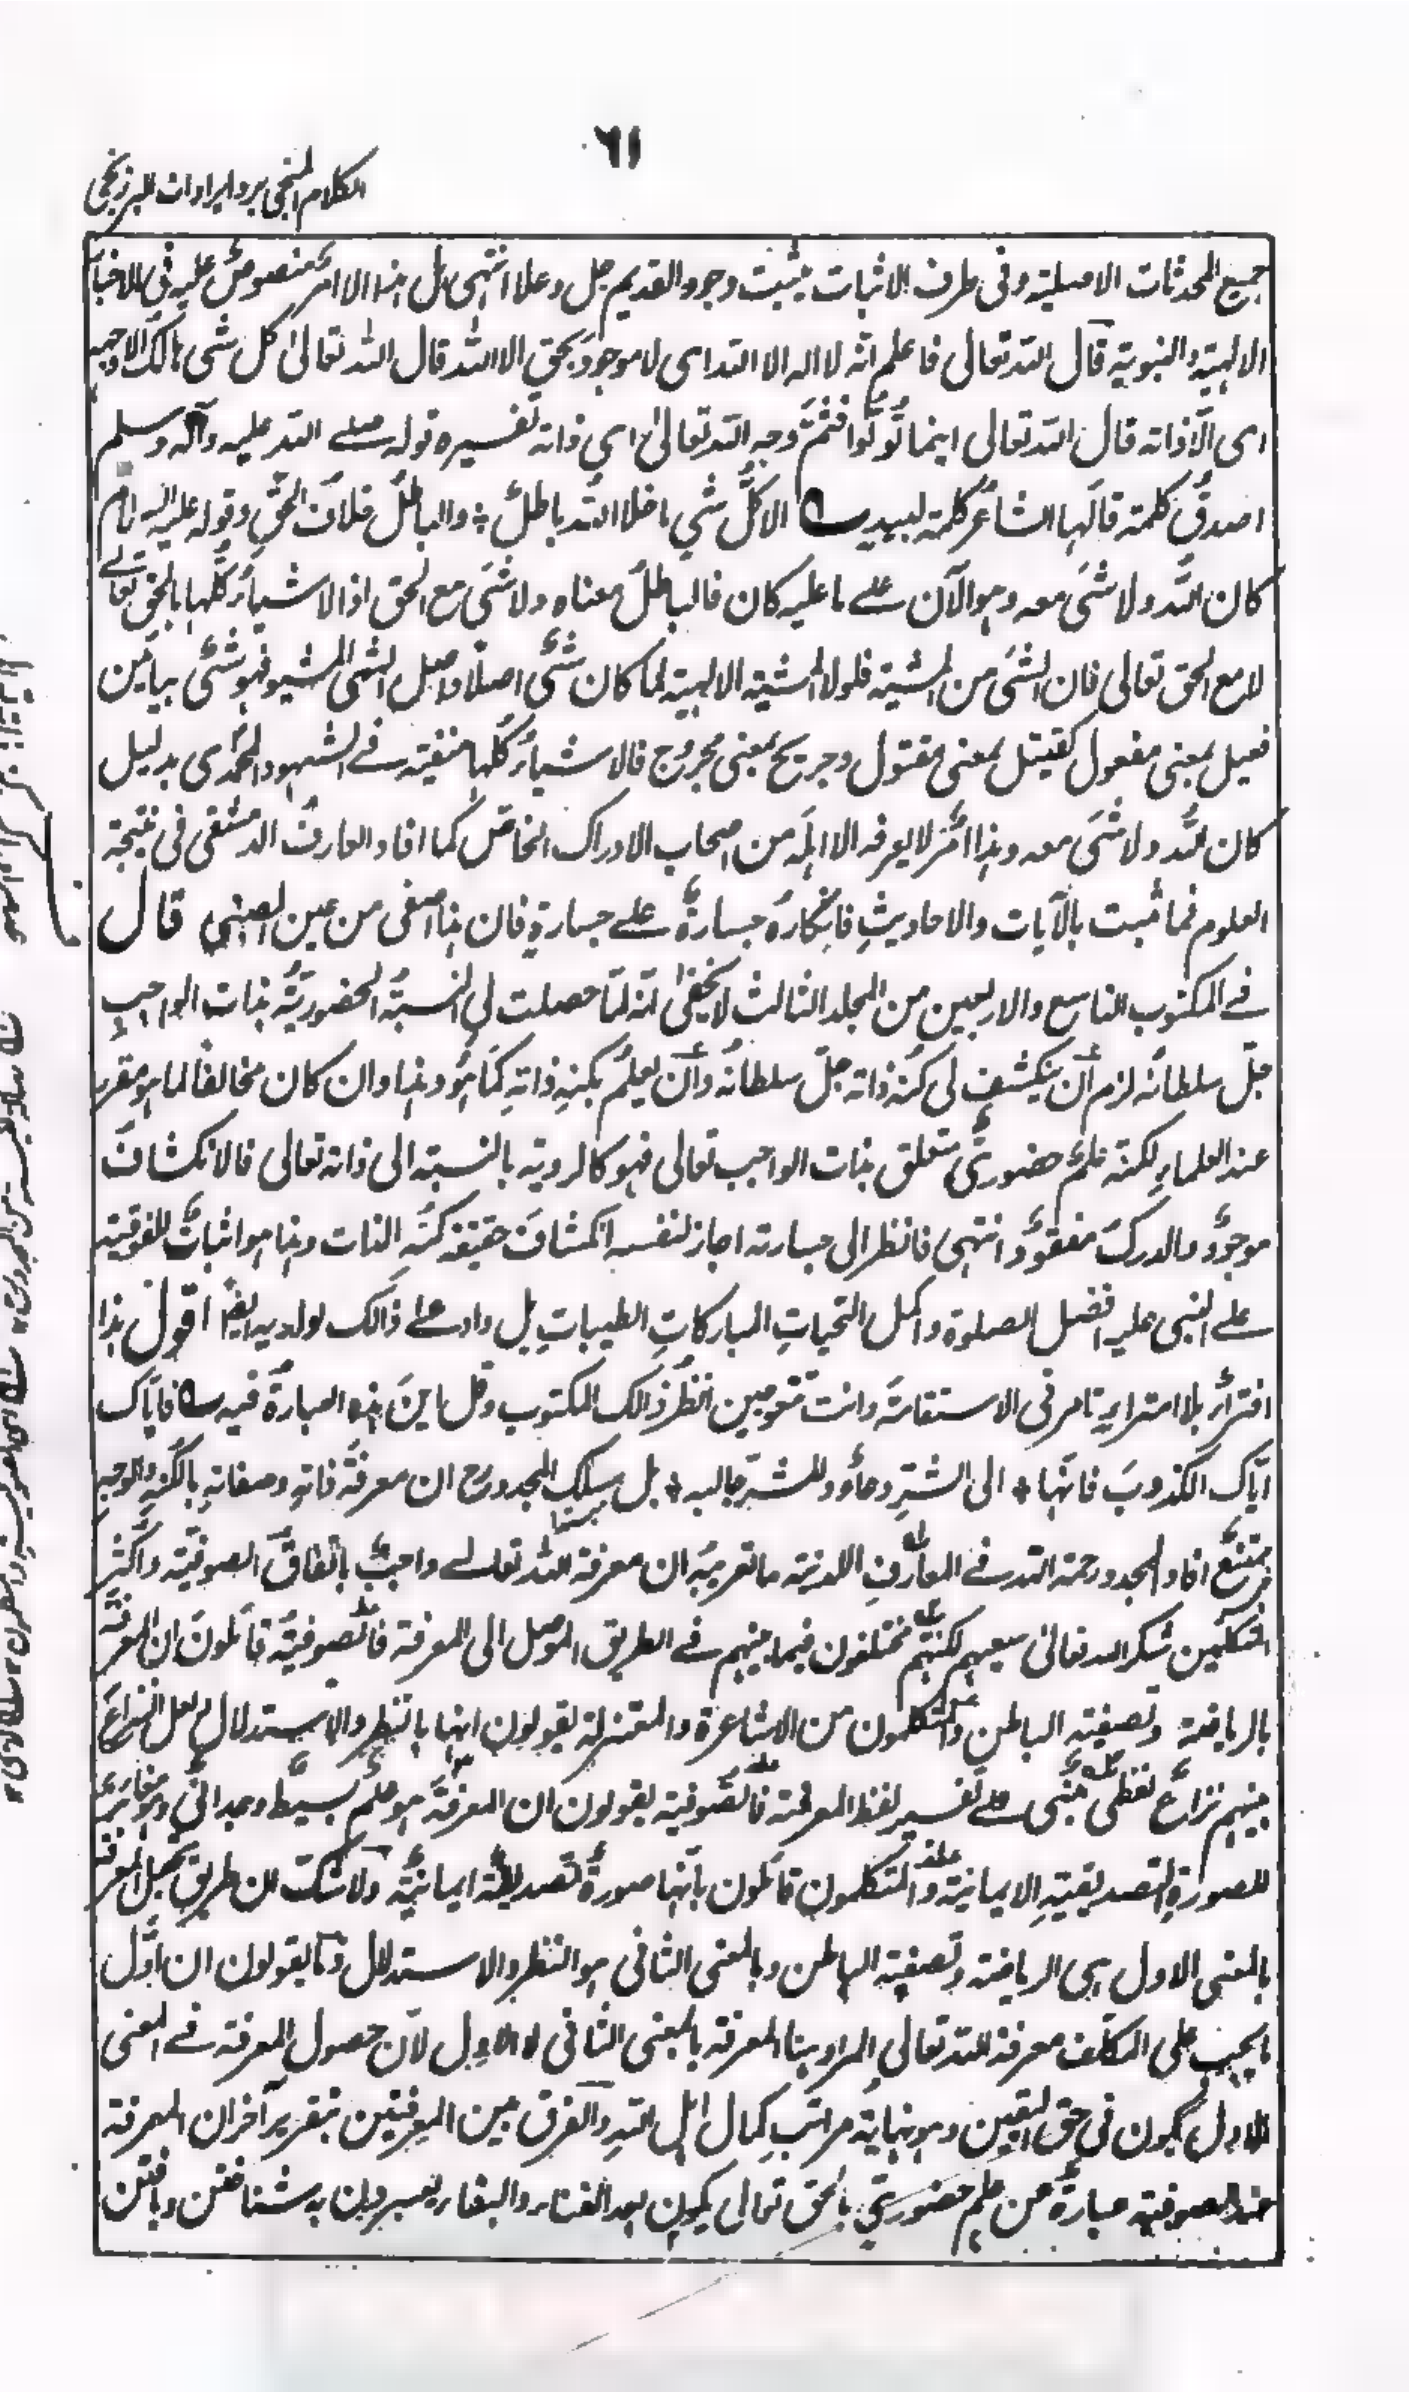 ٦١
الكلام المنجى برد ايرادات البرزنجى
جميع المحدثات الاصلية وفى طرف الاثبات يثبت وجود القديم جل وعلا انتهى بل هذا الامر منصوص عليه فى الاخبار
الالهية والنبوية قال الله تعالى فاعلم انه لا اله الا الله اى لا موجود بحق الا الله قال الله تعالى كل شى هالك الا وجهه
اى الا ذاته قال الله تعالى اينما تولوا فثم وجه الله تعالى اى ذاته تفسيره قوله صلے الله عليه وآله وسلم
اصدق كلمة قالها الشاعر كلمة لبيد الا كل شي ما خلا الله باطل والباطل خلاف الحق وقوله عليه السلام
كان الله ولا شى معه وهو الآن علے ما عليه كان فالباطل معناه ولا شى مع الحق اذ الاشياء كلها بالحق تعالے
لا مع الحق تعالى فان الشى من المشية فلولا المشية الالهية لما كان شى اصلا واصل الشى المشيو فهو شى بيائين
فعيل بمعنى مفعول كقتيل بمعنى مقتول وجريح بمعنى مجروح فالاشياء كلها منفية فے الشهود المحمدى بدليل
كان الله ولا شى معه وهذا امر لا يعرفه الا اهله من اصحاب الادراك الخاص كما افاد العارف الدمشقى فى نتيجة
العلوم فما ثبت بالآيات والاحاديث فانكاره جسارة علے جسارة فان هذا اصفى من عين قال
فے المكتوب التاسع والاربعين من المجلد الثالث لا يخفى انه لما حصلت لى النسبة الحضورية بذات الواجب
جل سلطانه لزم ان ينكشف لى كنه ذاته جل سلطانه وان يعلم بكنه ذاته كما هو وهذا وان كان مخالفا لما هو مقرر
عند العلماء لكنه علم حضورى متعلق بذات الواجب تعالى فهو كالروية بالنسبة الى ذاته تعالى فالانكشاف
موجود والدرك مفقود انتهى فانظر الى جسارته اجاز لنفسه انكشاف حقيقة كنه الذات وهذا هو اثبات للفوقية
علے النبى عليه افضل الصلوة واكمل التحيات المباركات الطيبات بل وادعے ذالك لولديه ايضا اقول هذا
افتراء بلا امتراء تامر فى الاستقامة وانت تعوجين انظر ذالك المكتوب وقل اين هذه العبارة فيه فاياك
اياك الكذوب فانها الى الشر دعاء وللشر جالب بل مسلك المجدد رح ان معرفة ذاته وصفاته بالكنه والوجه
ممتنع افاد المجدد رحمة الله فے المعارف اللدنية ما تعريبه ان معرفة الله تعالے واجب باتفاق الصوفية واكثر
المتكلمين شكر الله تعالى سعيهم لكنهم مختلفون فيما بينهم فے الطريق الموصل الى المعرفة فالصوفية قائلون ان المعرفة
بالرياضة وتصفية الباطن والمتكلمون من الاشاعرة والمعتزلة يقولون انها بالنظر والاستدلال لعل النزاع
بينهم نزاع لفظى مبنى علے تفسير لفظ المعرفة فالصوفية يقولون ان المعرفة هو علم بسيط وجدانى وهو مغاير
للصورة التصديقية الايمانية والمتكلمون قائلون بانها صورة تصديقية ايمانية ولا شك ان طريق تحصيل المعرفة
بالمعنى الاول هى الرياضة وتصفية الباطن وبالمعنى الثانى هو النظر والاستدلال وما يقولون ان اول
ما يجب على المكلف معرفة الله تعالى المراد بها المعرفة بالمعنى الثانى لا الاول لان حصول المعرفة فے المعنى
الاول يكون فى حق اليقين وهو نهاية مراتب كمال اهل الله والفرق بين المعرفتين بتقرير آخر ان المعرفة
عند الصوفية عبارة عن علم حضورى بالحق تعالى يكون بعد الفناء والبقاء يعبرون به شناختن ويافتن